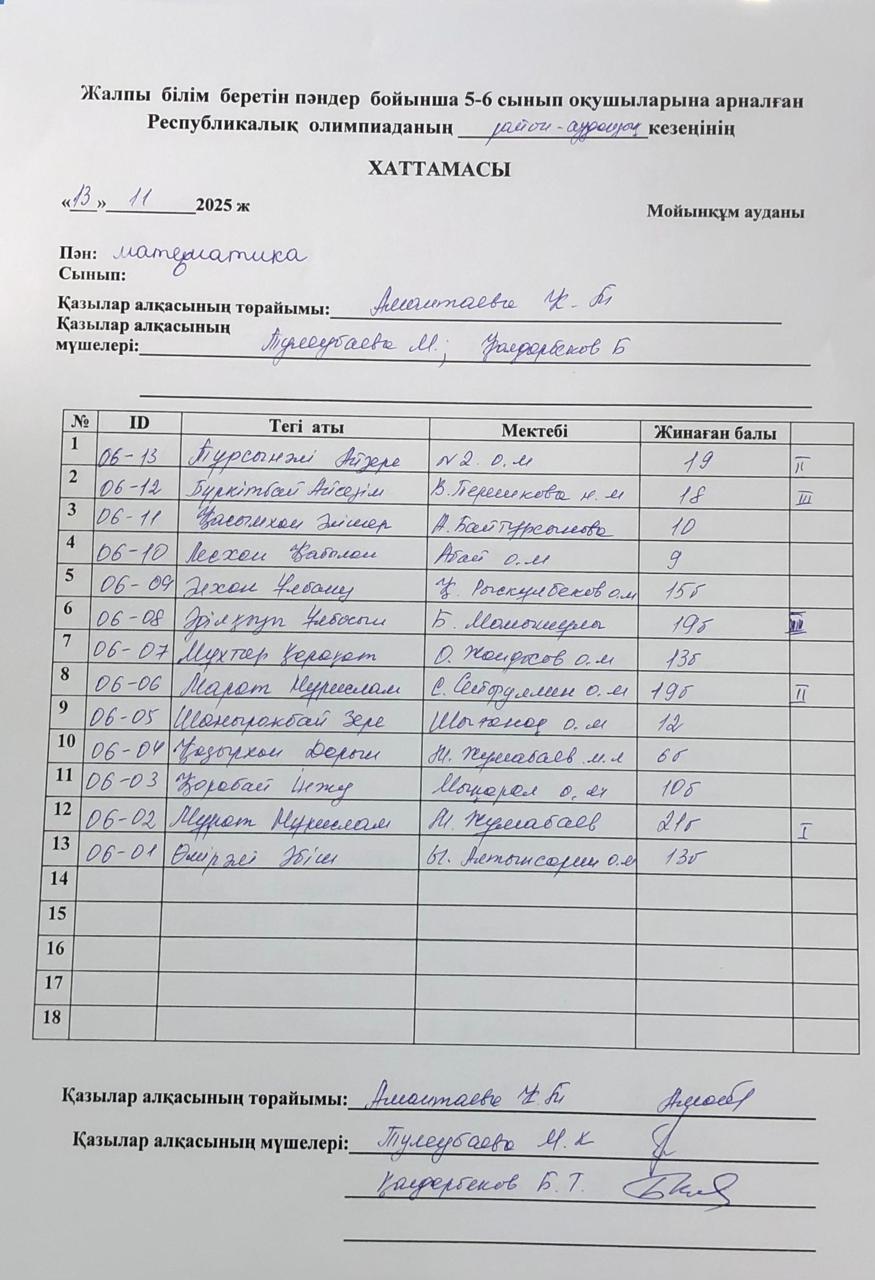 Жалпы білім беретін пәндер бойынша 5-6 сынып оқушыларына арналған
Республикалық олимпиаданың район-аудандық кезеңінің
ХАТТАМАСЫ
«13» 11 2025 ж Мойынқұм ауданы
Пән: математика
Сынып:
Қазылар алқасының төрайымы: Амантаева
Қазылар алқасының
мүшелері: Тулеубаева М.; Қалдарбеков Б
№ ID Тегі аты Мектебі Жинаған балы
1 06-13 Тұрсынәлі Айзере №2 о.м 19 II
2 06-12 Бүркітбай Айсезім В.Терешкова н.м 18 III
3 06-11 Қасымхан Әлішер А.Байтұрсынова 10
4 06-10 Лесхан Қабылан Абай о.м 9
5 06-09 Элхан Ұлбану Қ. Рысқұлбеков о.м 15б
6 06-08 Ұлбосын Б. Момышұлы 19б
7 06-07 Мұхтар Қарақат О. Жандосов о.м 13б
8 06-06 Марат Нұрислам С. Сейфуллин о.м 19б II
9 06-05 Шаңырақбай Зере Шығанақ о.м 12
10 06-04 Қадырхан Дарын М. Жұмабаев 6б
11 06-03 Қарабай Інжу Мыңарал о.м 10б
12 06-02 Мұрат Нұрислам М. Жұмабаев 21б I
13 06-01 Өмірәлі Әбіш Ы. Алтынсарин о.м 13б
14
15
16
17
18
Қазылар алқасының төрайымы: Амантаева
Қазылар алқасының мүшелері: Тулеубаева М.К
Қалдарбеков Б.Т.